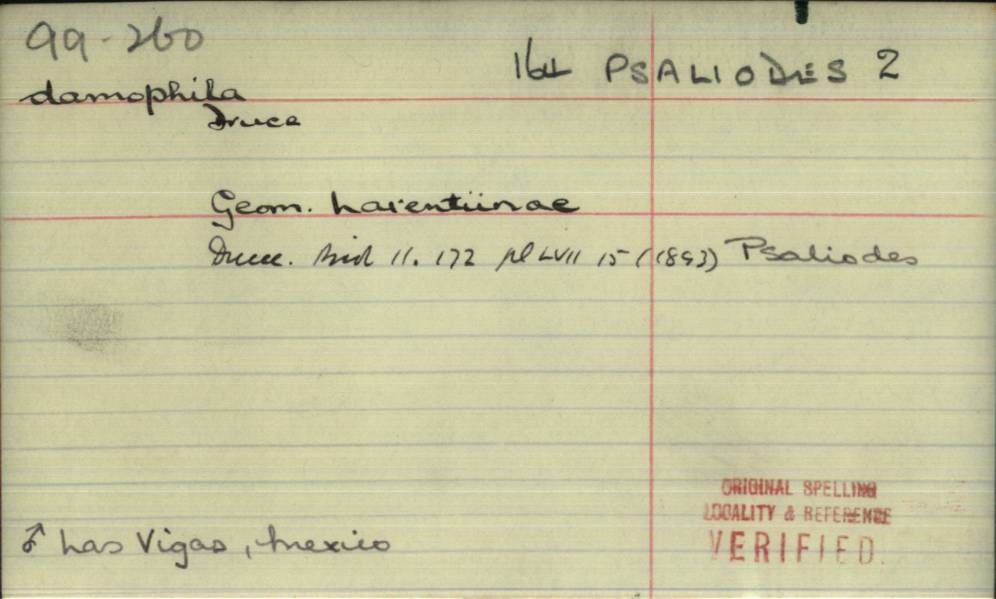 99-260
164 PSALIODES 2
damophila
Druce
Geom. Larentiinae
Druce. Biol 11. 172 pl LVII 15 (1893) Psaliodes
♂ Las Vigas, Mexico
ORIGINAL SPELLING
LOCALITY & REFERENCE
VERIFIED.